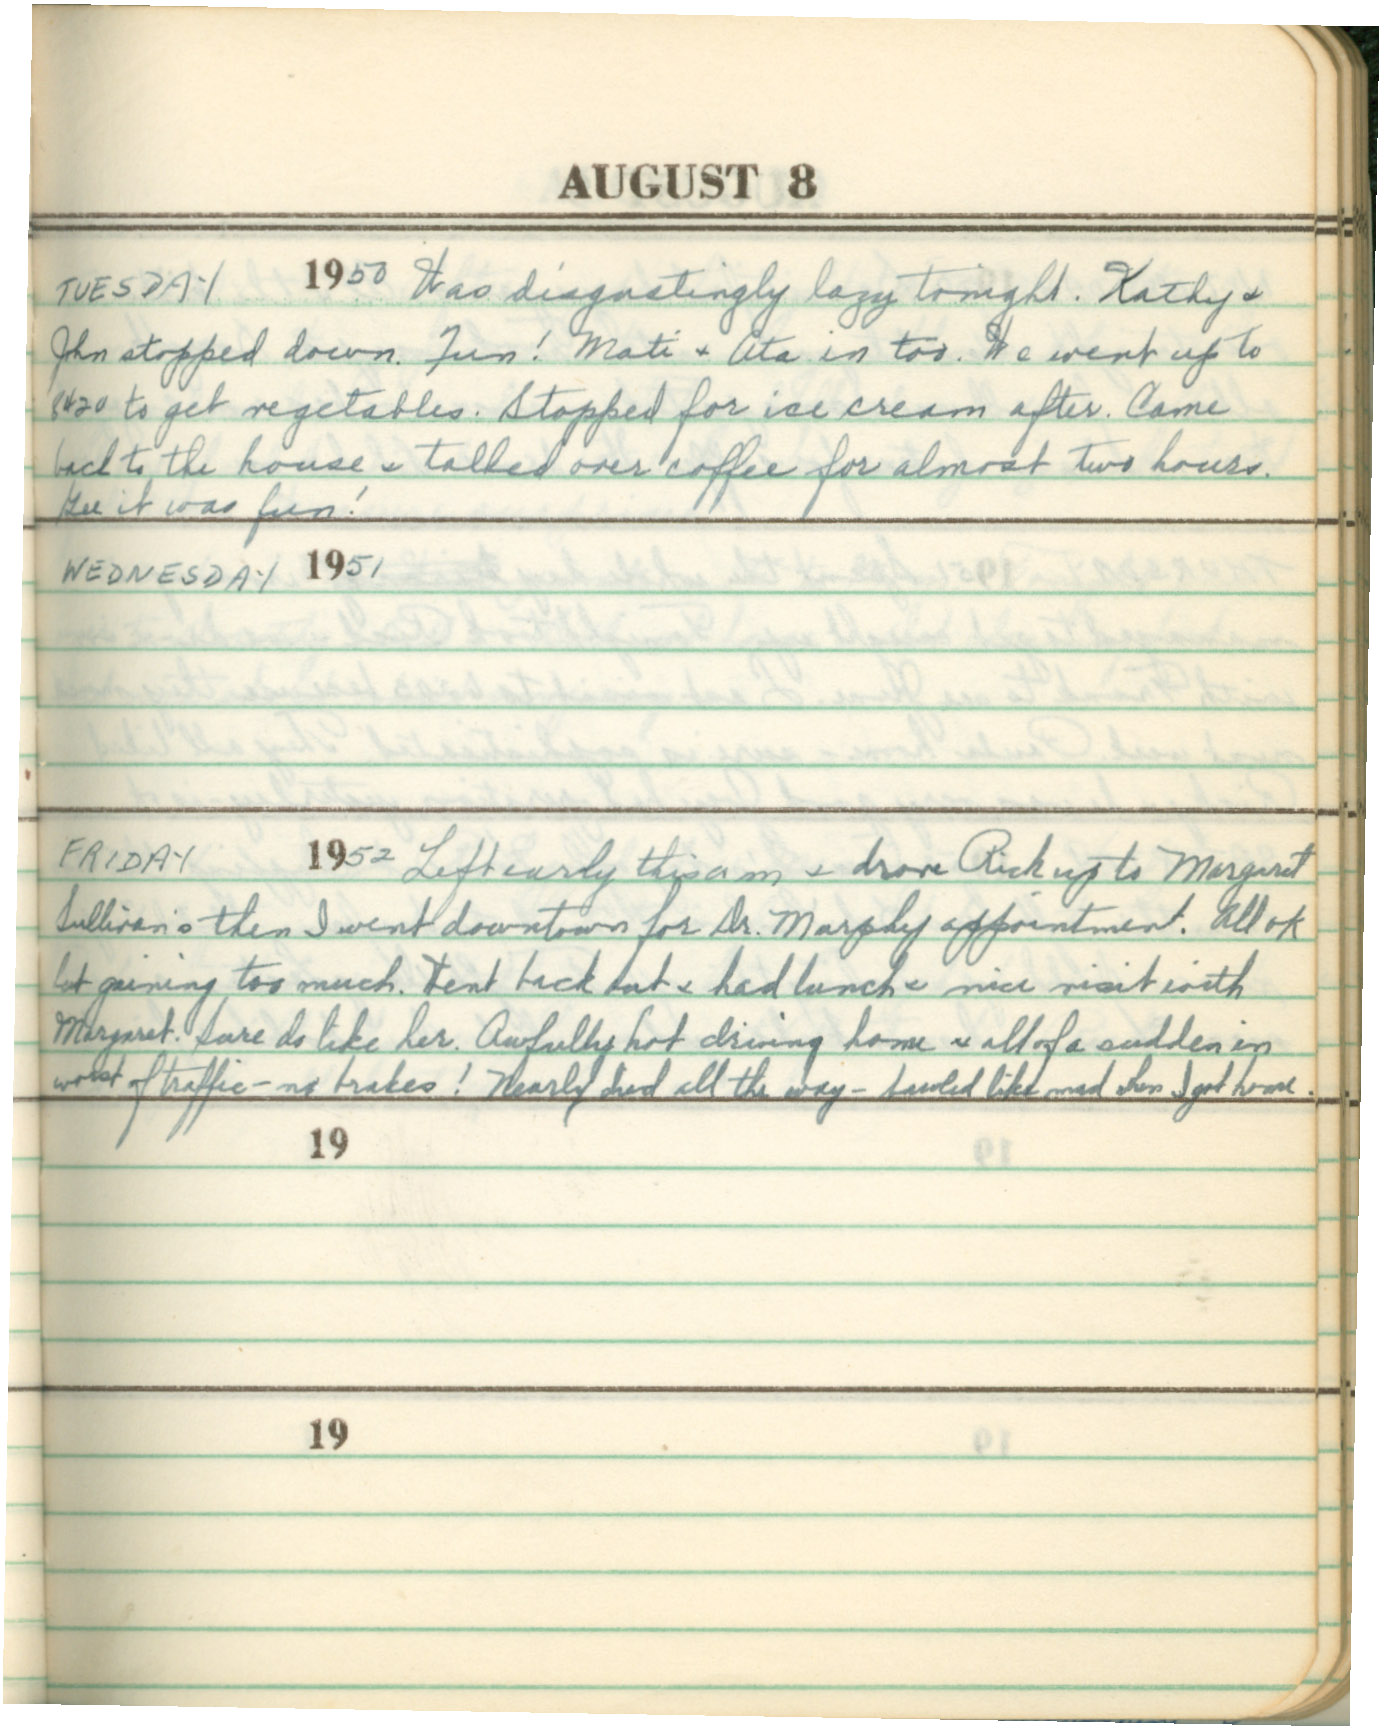 AUGUST 8
TUESDAY 1950 Was disgustingly lazy tonight. Kathy &
John stopped down. Fun! Mati & Ata in too. We went up to
8420 to get vegetables. Stopped for ice cream after. Came
back to the house & talked over coffee for almost two hours.
Gee it was fun!
WEDNESDAY 1951
FRIDAY 1952 Left early this am & drove Rick up to Margaret
Sullivan's then I went downtown for Dr. Murphy appointment. All ok
but gaining too much. Went back out & had lunch & nice visit with
Margaret. Sure do like her. Awfully hot driving home & all of a sudden in
worst of traffic - no brakes! Nearly died all the way - bawled like mad when I got home.
19
19